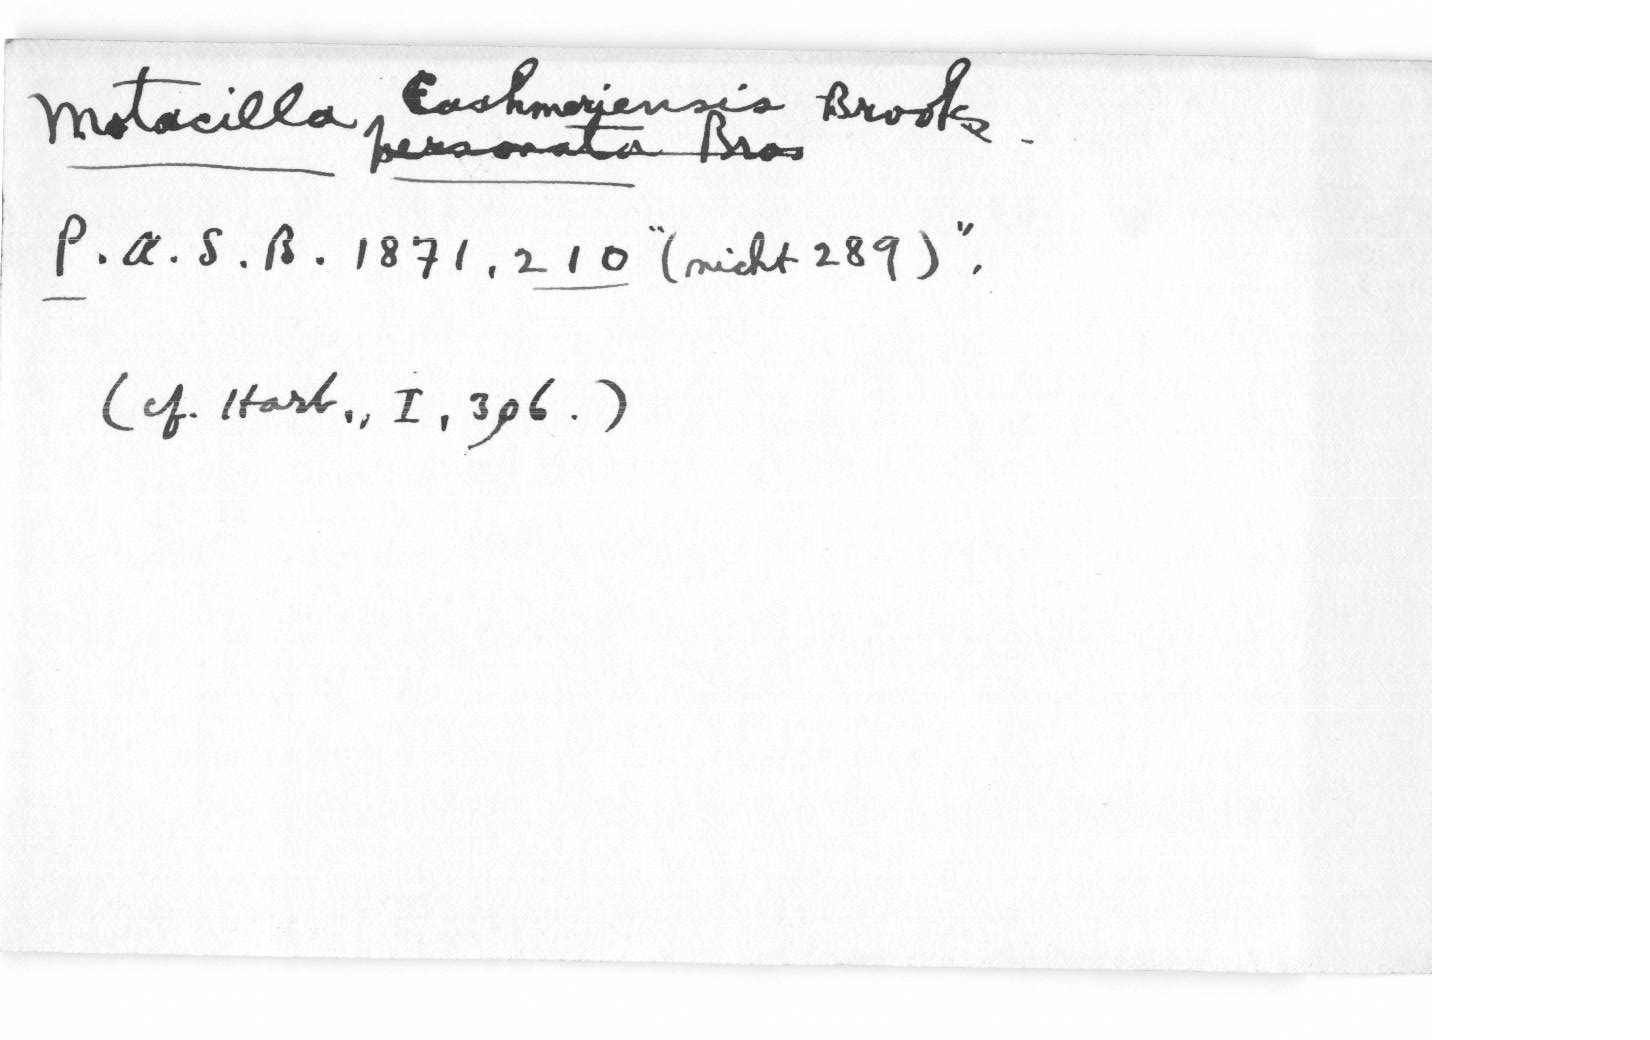 Motacilla, Cashmeriensis Brooks -
personata Bros
P. A. S. B. 1871, 210 "(nicht 289)",
(cf. Hart., I, 306.)